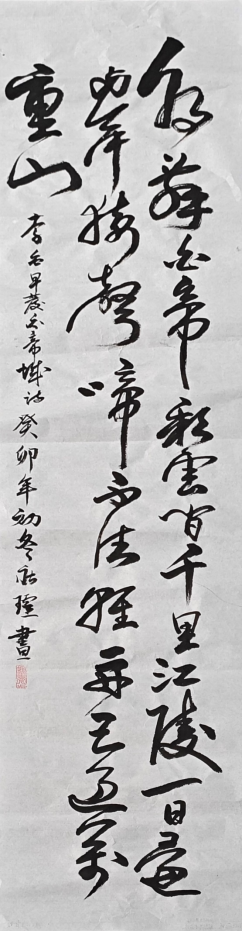 朝辞白帝彩雲間千里江陵一日還
両岸猿聲啼不住輕舟已過萬
重山
李白早發白帝城詩 癸卯年初冬 瑄書